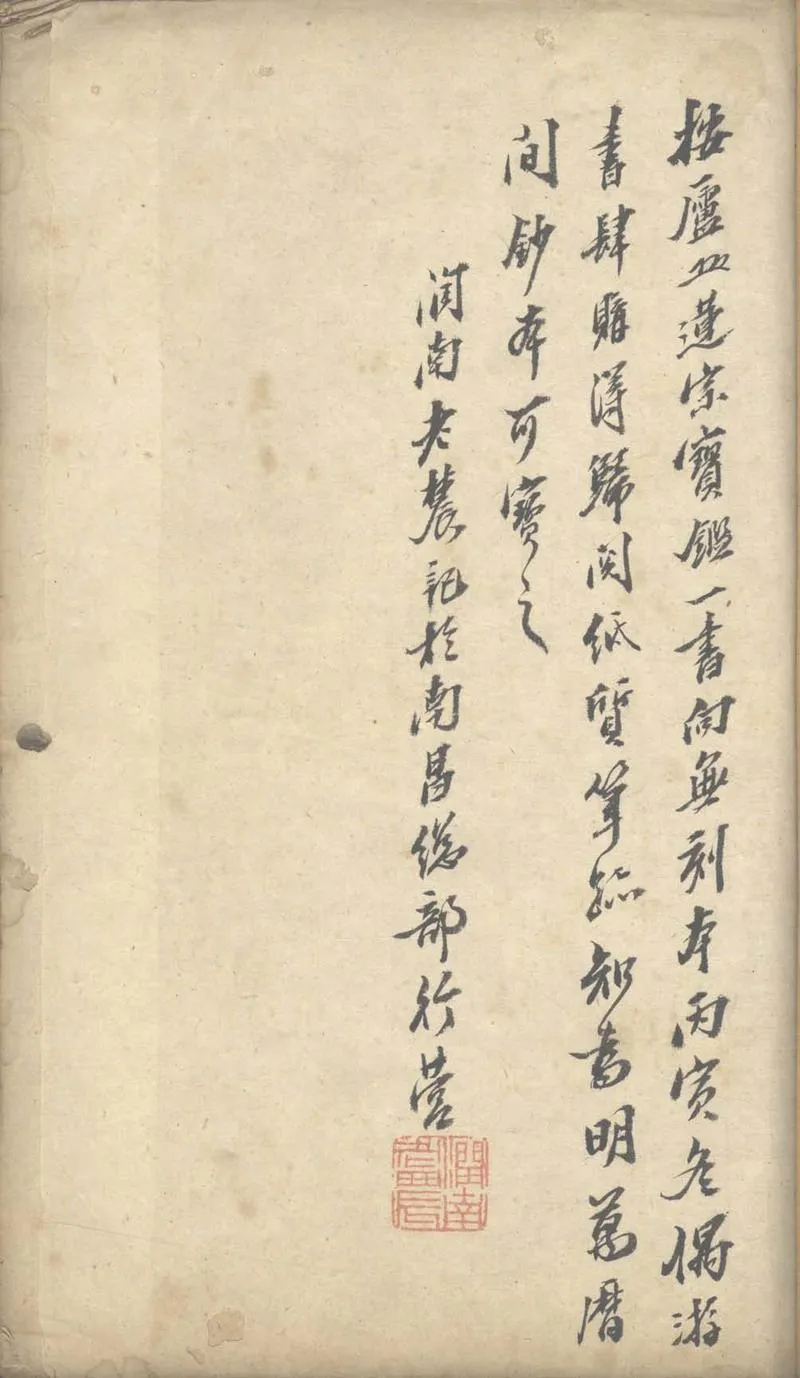 按廬山蓮宗寶鑑一書向無刻本丙寅冬偶游
書肆購得歸閱紙質筆跡知為明萬曆
間鈔本可寶之
潤南老農記於南昌總部行營
潤南